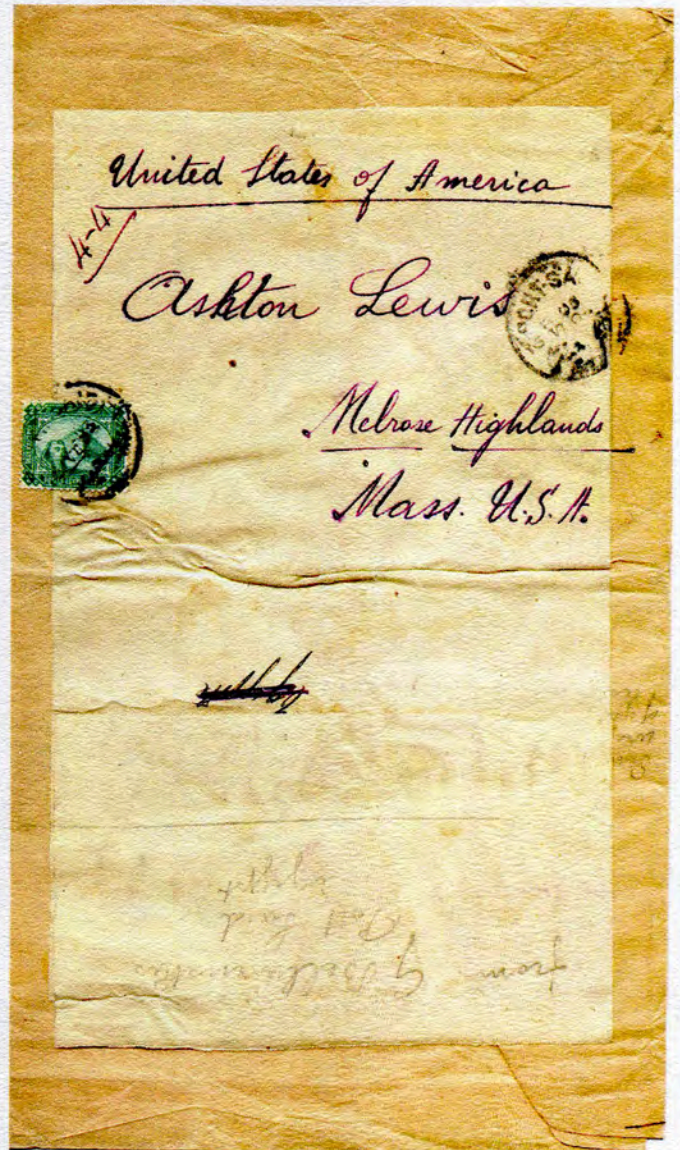 United States of America
4-4
Ashton Lewis
Melrose Highlands
Mass. U.S.A.
from G
Port Said
Egypt